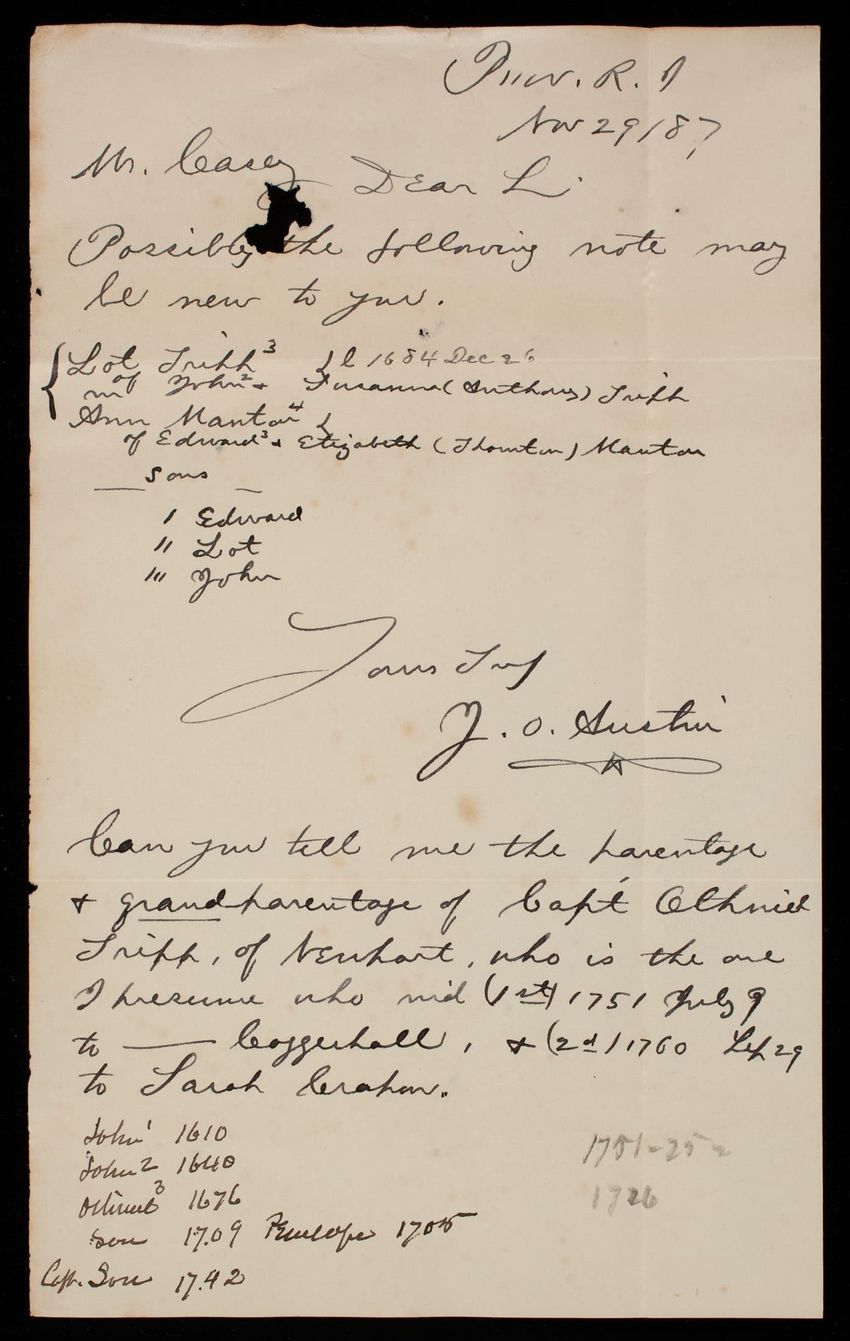 Prov. R. I
Nov 29/87,
Mr. Casey Dear Sir.
Possibly the following note may
be new to you.
{ Lot Tripp³ } b 1684 Dec 26
m of John² & Susanna (Anthony) Tripp
Ann Manton⁴ {
of Edward³ & Elizabeth (Thornton) Manton
Sons
I Edward
II Lot
III John
Yours Try
J. O. Austin
Can you tell me the parentage
& grand-parentage of Capt Othniel
Tripp, of Newport, who is the one
I presume who md (1st) 1751 July 9
to —— Coggeshall, & (2d) 1760 Sep 29
to Sarah
John¹ 1610
John² 1640
Othniel³ 1676
Son 1709 Penelope 1705
Capt. Son 1742
1751-25=
1726